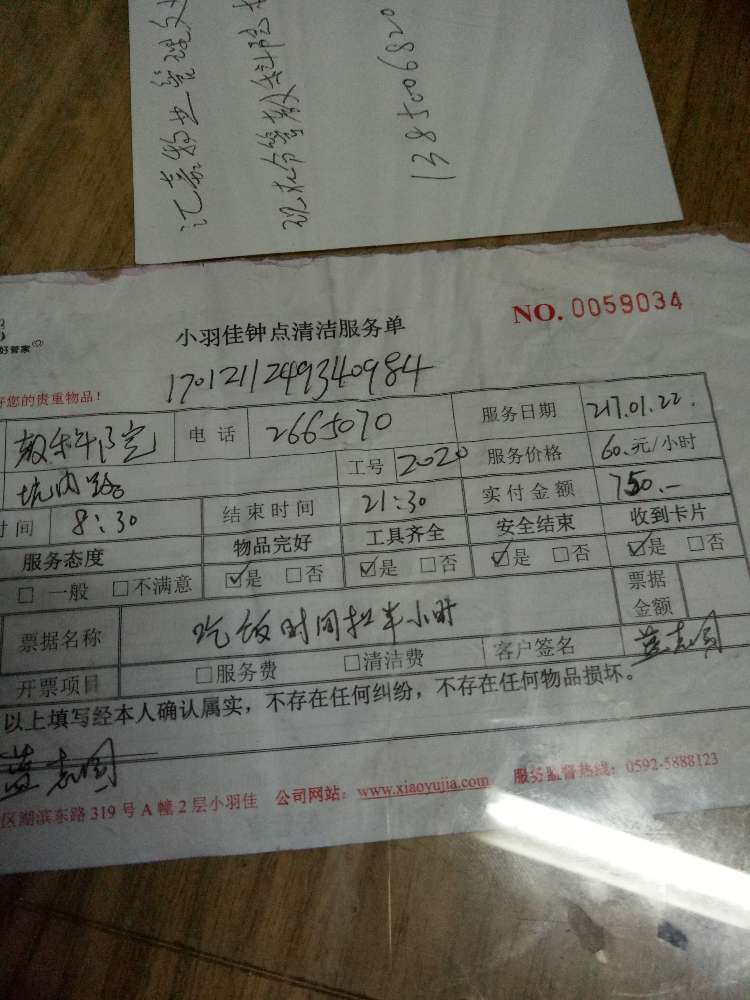 汇嘉物业管理
13850068820
NO. 0059034
好管家
小羽佳钟点清洁服务单
1701211249340984
您的贵重物品！
电话 2665070 服务日期 217.01.22.
坑内路 工号 2020 服务价格 60.元/小时
时间 8:30 结束时间 21:30 实付金额 750.—
服务态度 物品完好 工具齐全 安全结束 收到卡片
□ 一般 □不满意 ☑是 □否 ☑是 □否 ☑是 □否 ☑是 □否
票据名称 吃饭时间扣半小时 票据金额
开票项目 □服务费 □清洁费 客户签名 蓝志国
以上填写经本人确认属实，不存在任何纠纷，不存在任何物品损坏。
蓝志国
区湖滨东路 319 号 A 幢 2 层小羽佳 公司网站：www.xiaoyujia.com 服务监督热线：0592-5888123